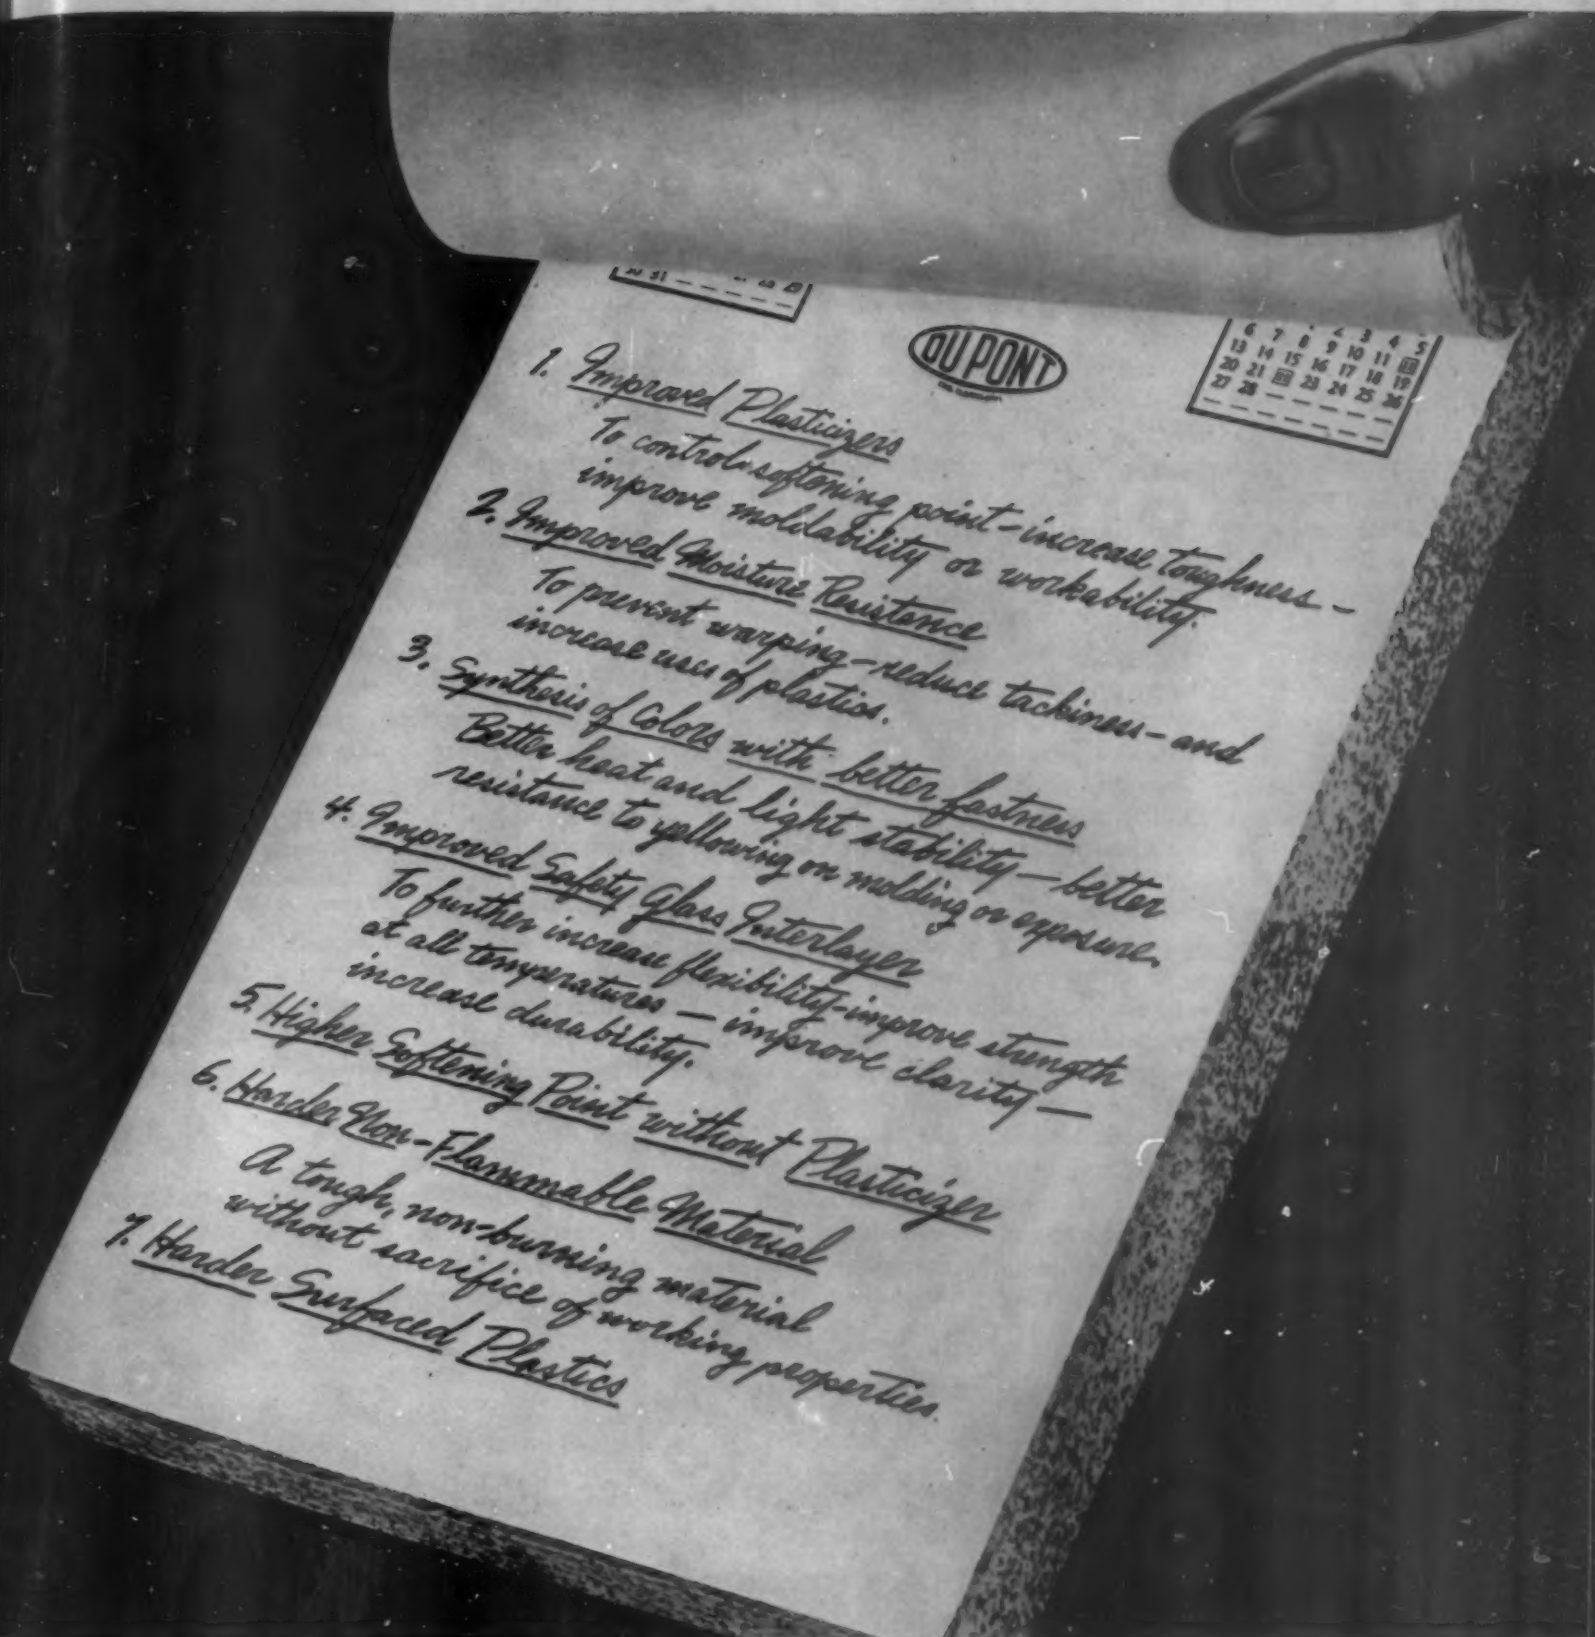 30 31
DU PONT
2 3 4 5
6 7 8 9 10 11 12
13 14 15 16 17 18 19
20 21 22 23 24 25 26
27 28
1. Improved Plasticizers
To control softening point - increase toughness -
improve moldability or workability.
2. Improved Moisture Resistence
To prevent warping - reduce tackiness - and
increase uses of plastics.
3. Synthesis of Colors with better fastness
Better heat and light stability — better
resistance to yellowing on molding or exposure.
4. Improved Safety Glass Interlayer
To further increase flexibility - improve strength
at all temperatures — improve clarity —
increase durability.
5. Higher Softening Point without Plasticizer
6. Harder Non-Flammable Material
A tough, non-burning material
without sacrifice of working properties.
7. Harder Surfaced Plastics